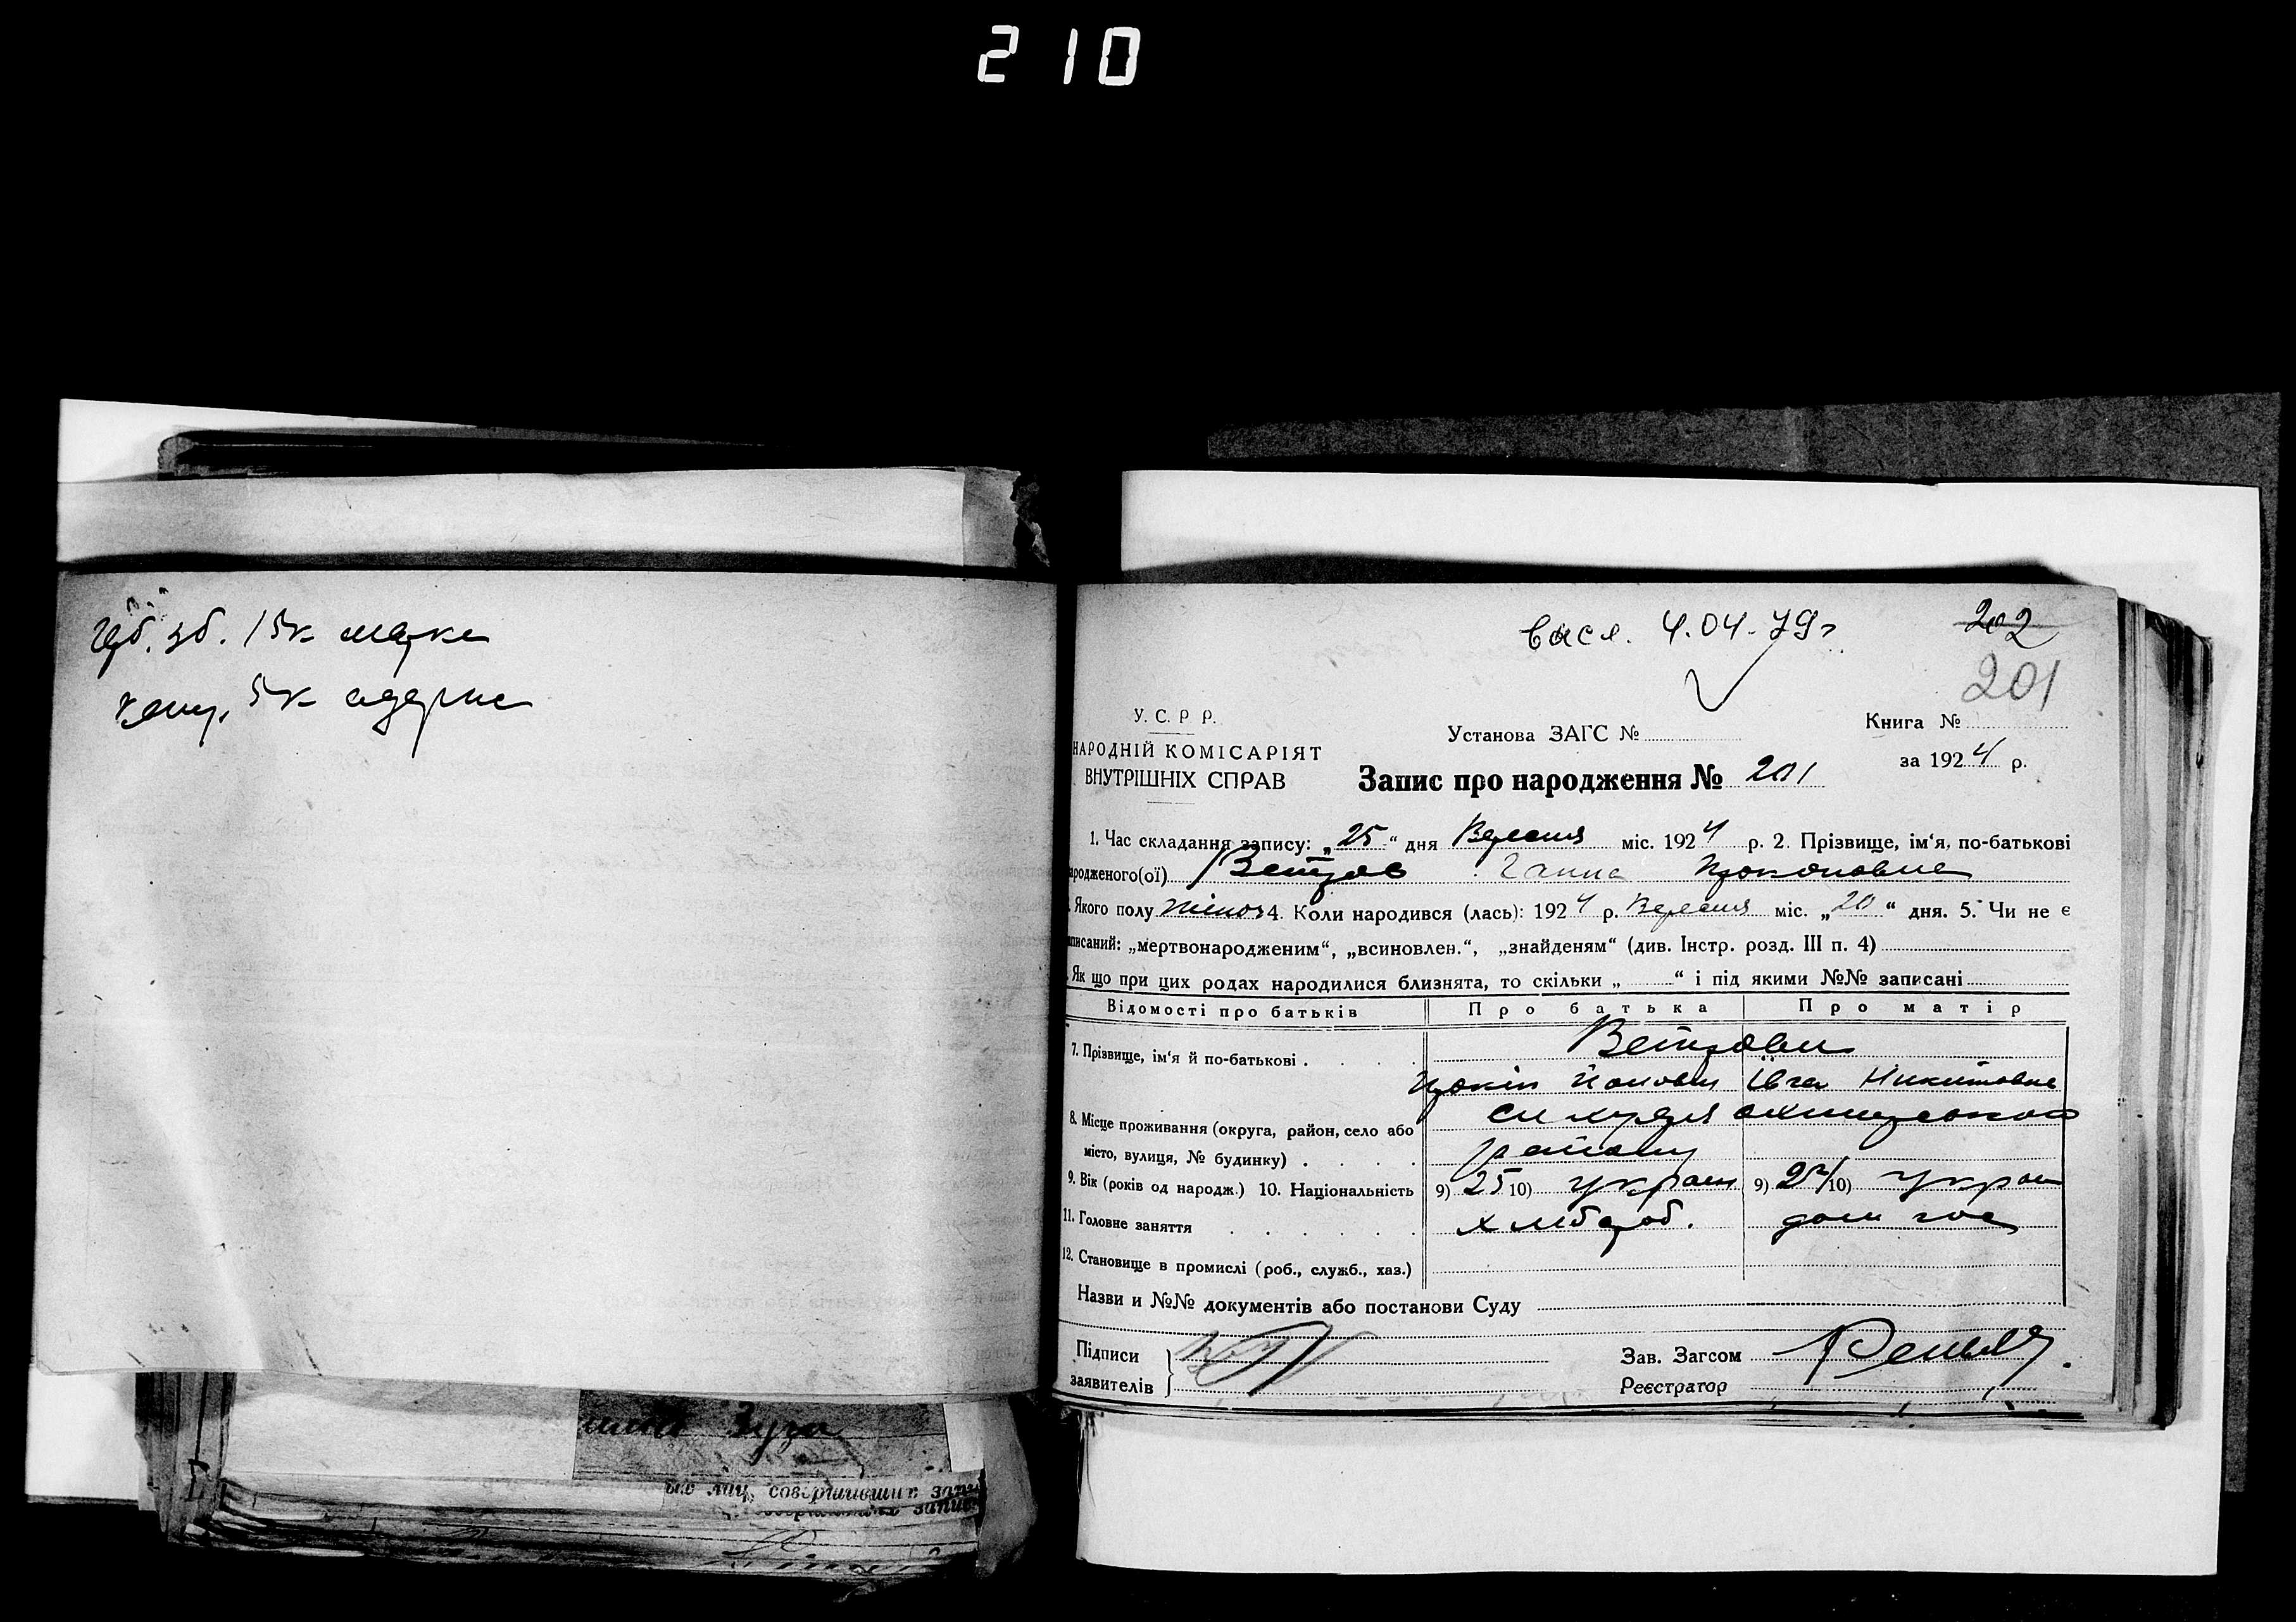 210
15к
5к
висл. 4.04.79г
202
201
У. С. Р. Р.
НАРОДНІЙ КОМІСАРІЯТ
ВНУТРІШНІХ СПРАВ
Установа ЗАГС №
Книга №
за 1924 р.
Запис про народження № 201
1. Час складання запису: „25“ дня Вересня міс. 1924 р. 2. Прізвище, ім‘я, по-батькові
ародженого(ої) Ветров Ганна Прокоповна
Якого полу жіноч 4. Коли народився (лась): 1924 р. Вересня міс. „20“ дня. 5. Чи не є
аписаний: „мертвонародженим“, „всиновлен.“, „знайденям“ (див. Інстр. розд. III п. 4)
Як що при цих родах народилися близнята, то скільки „ “ і під якими №№ записані
Відомості про батьків Про батька Про матір
7. Прізвище, ім‘я й по-батькові . . . . Ветрови
Прокіп Івга Никитовна
8. Місце проживання (округа, район, село або
місто, вулиця, № будинку) . . . . району
9. Вік (років од народж.) 10. Національність 9) 25 10) україн 9) 10) україн
11. Головне заняття . . . . . . хлібороб. дом гос
12. Становище в промислі (роб., служб., хаз.)
Назви и №№ документів або постанови Суду
Підписи
заявителів
Зав. Загсом
Реєстратор
Зуга
лиц, совершивших запи